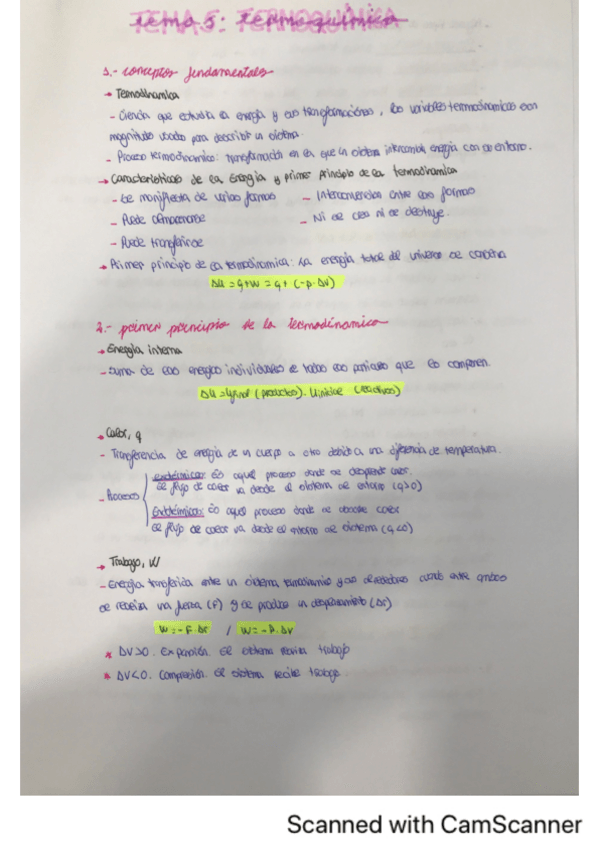 TEMA 5: TERMOQUÍMICA
1.- conceptos fundamentales
→ Termodinamica
- Ciencia que estudia la energía y sus transformaciones, las variables termodinamicas son
magnitudes usadas para describir un sistema.
- Proceso termodinamico: transformación en la que un sistema intercambia energía con su entorno.
→ Caracteristicas de la Energia y primer principio de la termodinamica
- Se manifiesta de varias formas - Interconversion entre sus formas
- Puede almacenarse - Ni se crea ni se destruye.
- Puede transferirse
→ Primer principio de la termodinamica: La energía total del universo se conserva
ΔU = q+W = q+ (-p·ΔV)
2.- primer principio de la termodinamica
→ Energía interna
- Suma de las energias individuales de todas las particulas que lo componen.
ΔU = Ufinal (productos) - Uinicial (reactivos)
→ Calor, q
- Transferencia de energía de un cuerpo a otro debido a una diferencia de temperatura.
- Procesos
es aquel proceso donde se desprende calor.
se flujo de calor va desde el sistema al entorno (q>0)
Endotérmicos: es aquel proceso donde se absorbe calor
el flujo de calor va desde el entorno al sistema (q<0)
→ Trabajo, W
- Energía transferida entre un sistema termodinamico y sus alrededores cuando entre ambos
se realiza una fuerza (F) y se produce un desplazamiento (Δr)
W = -F·Δr / W = -P·ΔV
* ΔV>0. Expansión. El sistema realiza trabajo
* ΔV<0. Compresión. El sistema recibe trabajo
Scanned with CamScanner